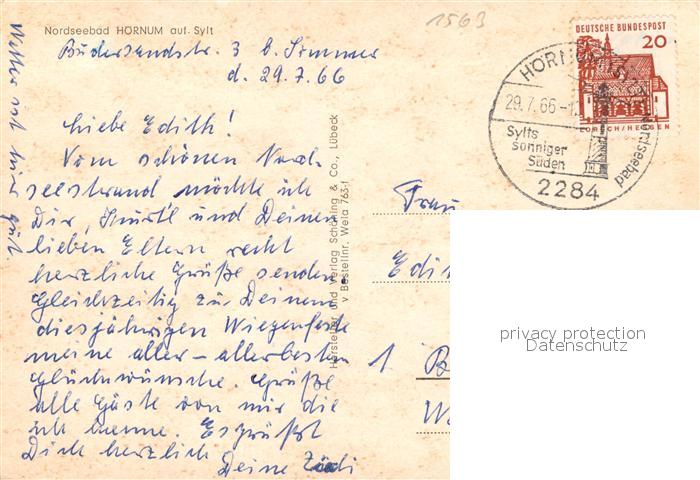 Nordseebad HÖRNUM auf Sylt
1563
Büdersandstr. 3 b. Simmer
d. 29.7.66
Liebe Edith!
Vom schönen Nord-
seestrand möchte ich
Dir, Kurt'l und Deinen
lieben Eltern recht
herzliche Grüße senden.
Gleichzeitig zu Deinem
diesjährigen Wiegenfeste
meine aller-allerbesten
Glückwünsche. Grüße
alle Gäste von mir die
ich kenne. Es grüßt
Dich herzlich
Deine
Wetter ist hier gut
Hersteller und Verlag Schöning & Co., Lübeck
v Bestellnr. Wela 763 f
DEUTSCHE BUNDESPOST
20
LORSCH/HESSEN
HÖRNUM (SYLT)
Nordseebad
29.7.66-1
Sylts
sonniger
Süden
2284
Frau
Edi
1 B
W
privacy protection
Datenschutz